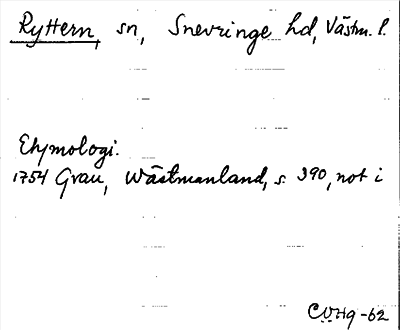 Ryttern, sn, Snevringe hd, Västm. l.
Etymologi.
1754 Grau, Wästmanland, s. 390, not i
-62